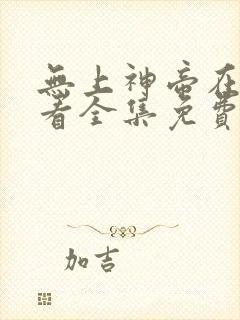 無上神帝在
看全集免費
加吉